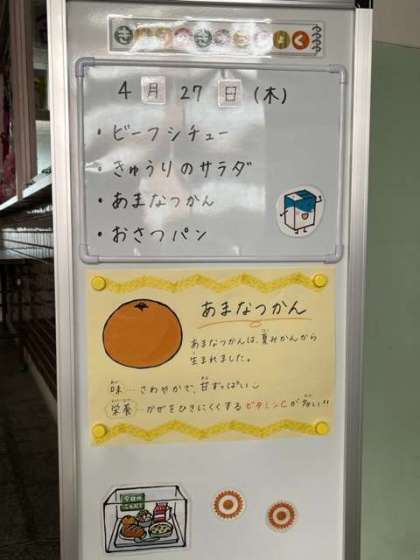 きょうのきゅうしょく
4月27日(木)
・ビーフシチュー
・きゅうりのサラダ
・あまなつかん
・おさつパン
あまなつかん
あまなつかんは、夏みかんから
生まれました。
味…さわやかで、甘ずっぱい
栄養…かぜをひきにくくするビタミンCが多い!!